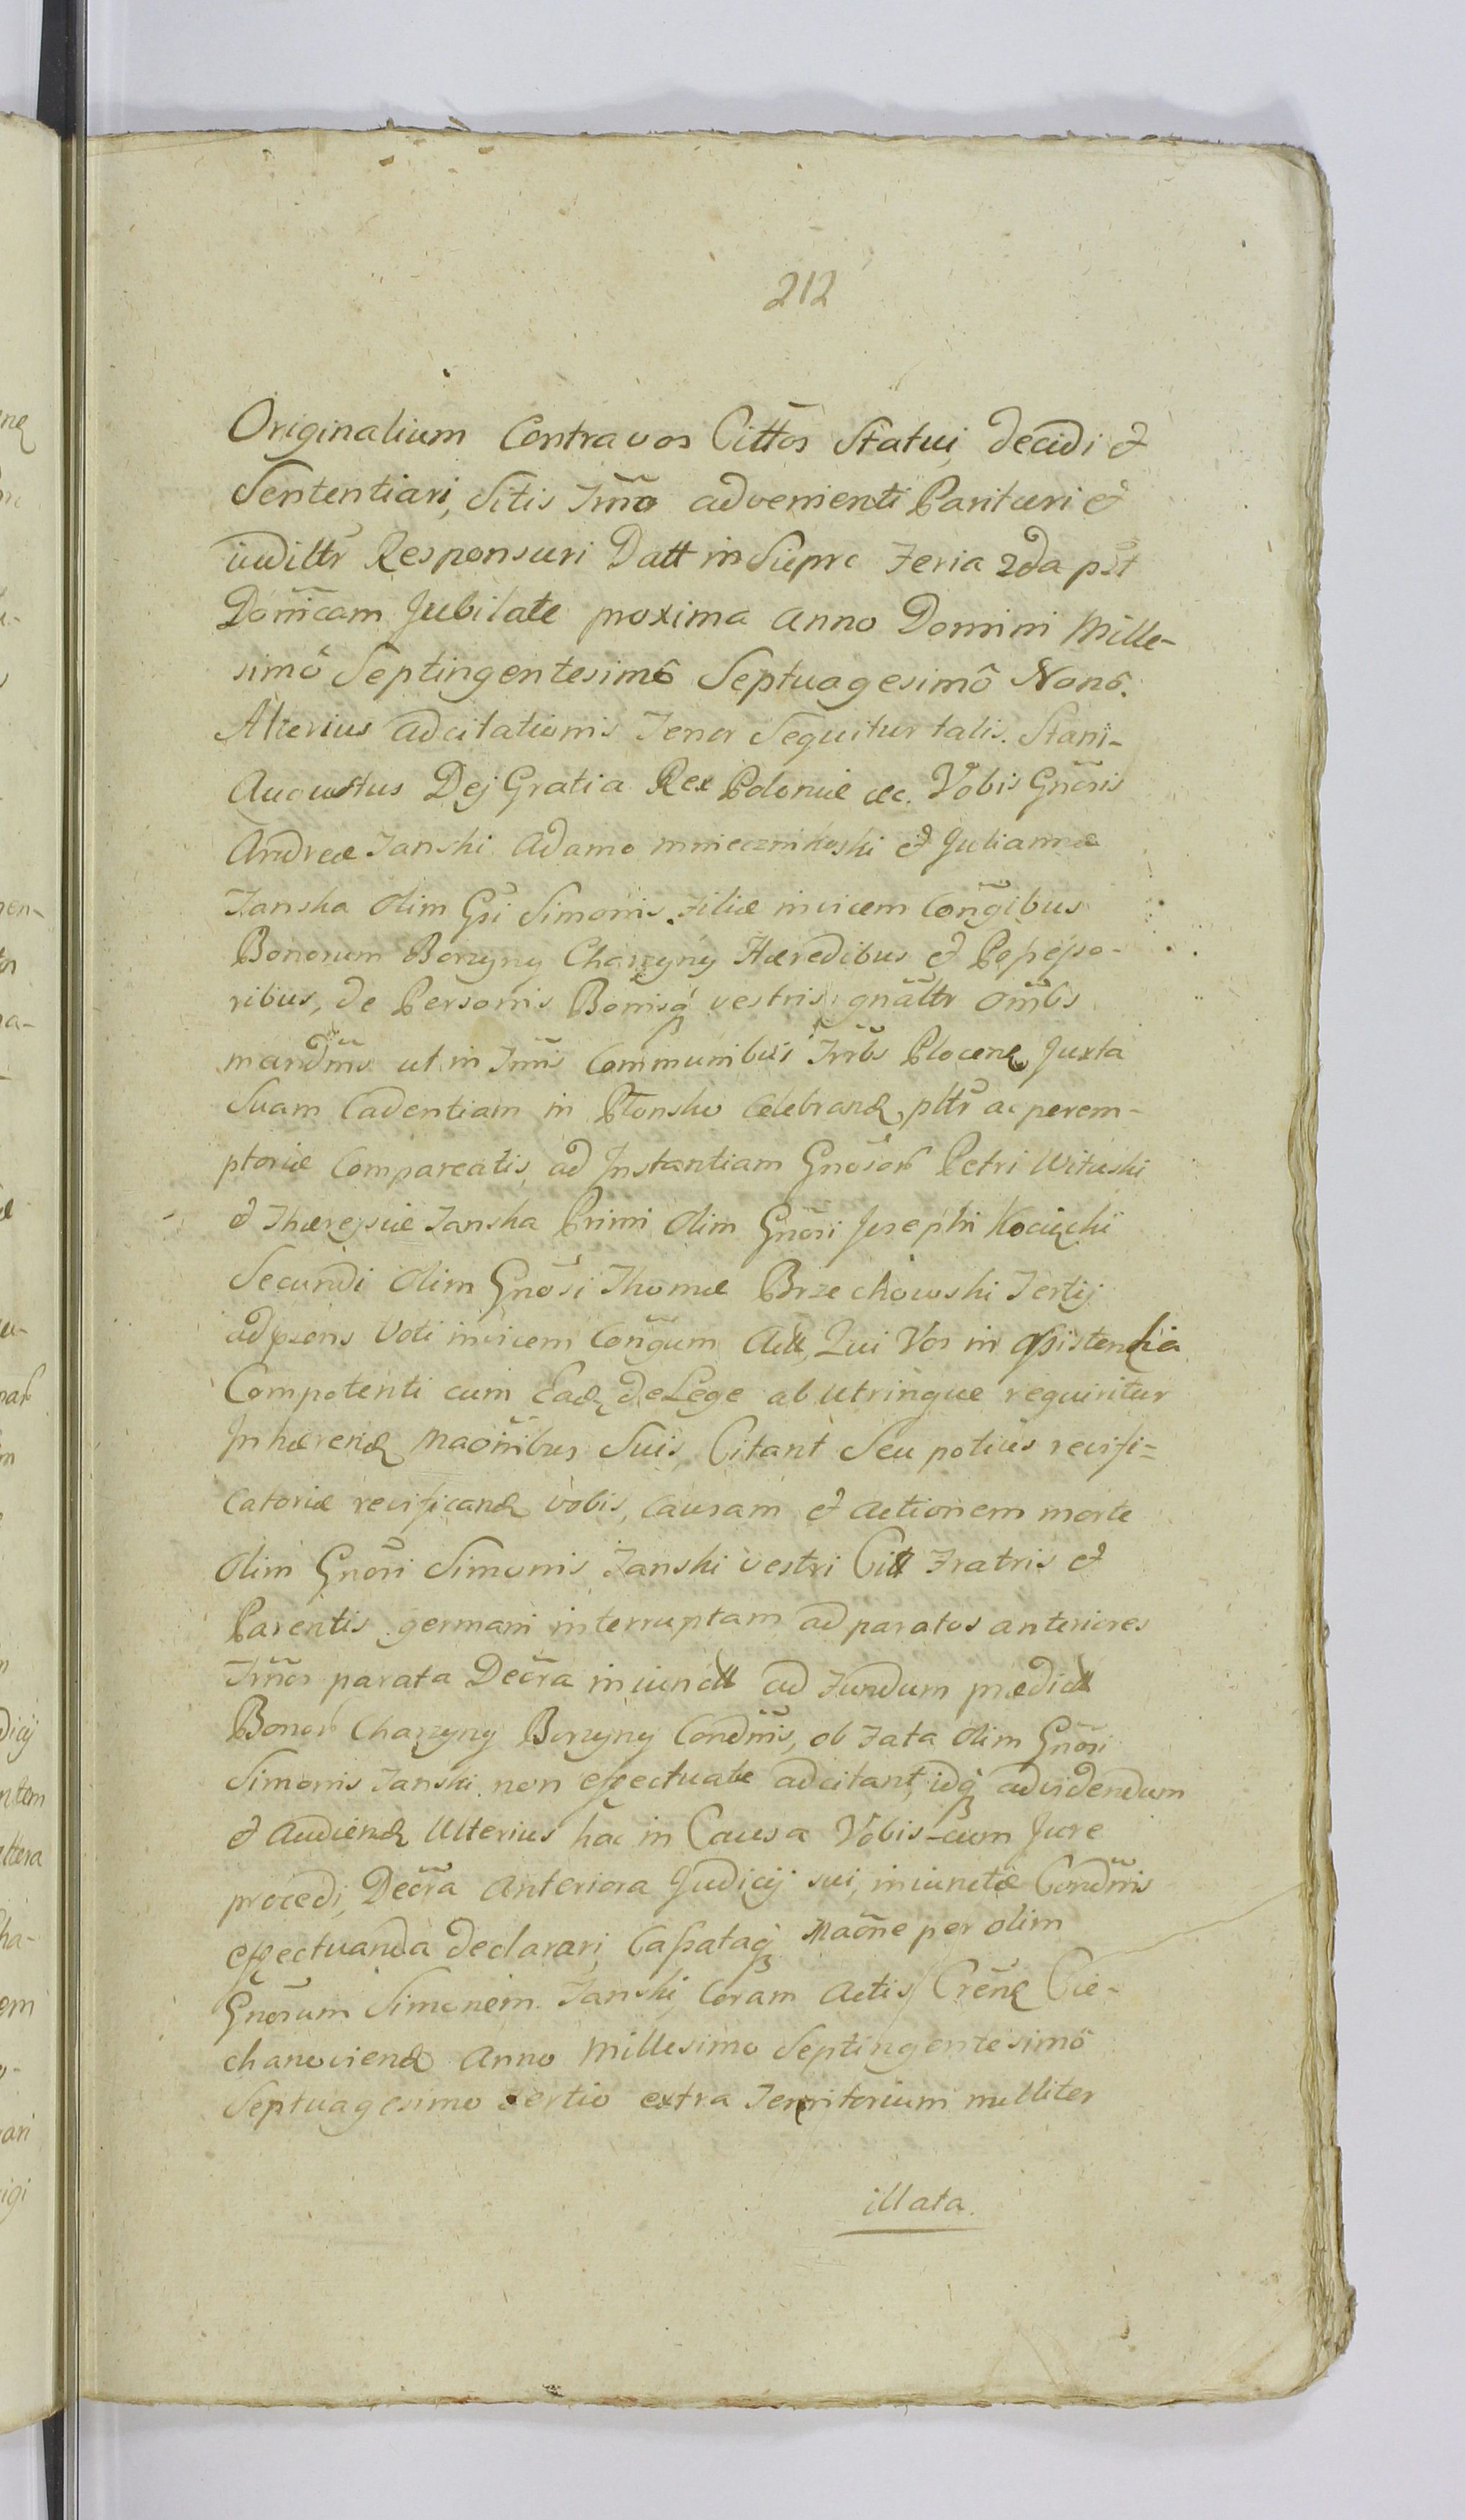 212
Originalium Contra vos Cittos Statui, decidi et
Sententiari, Sitis Tm̃o advenienti Parituri et
iudiltr Responsuri Datt in Sieprc Feria 2da pst
Dom̃icam Jubilate proxima Anno Domini Mille-
simô Septingentesimô Septuagesimô Nonô.
Alterius adcitationis Tenor Sequitur talis. Stani-
Augustus Dej Gratia Rex Poloniæ &c. Vobis Gñosis
Andreæ Janski Adamo mniecznikoski et Juliannæ
Janska Olim Gsi Simonis Filiæ invicem Coñgibus
Bonorum Borzyny Charzyny Hæredibus et Possesso-
ribus, de Personis Bonisq vestris gñaltr om̃bs
mandm̃s ut in Tm̃is Communibus Trrbs Plocen Juxta
Suam Cadentiam in Płonsko Celebrand pltr ac perem-
ptoriæ Compareatis, ad Instantiam Gnosor Petri Wituski
et Theressiæ Janska Primi Olim Gñosi Josephi Kocięcki
Secundi Olim Gnosi Thomæ Brzechowski Tertij
adpsens Voti invicem Coñgum Actt, Qui Vos in assistentia
Compotenti cum Ead, de Lege ab utrinque requiritur
Inhærend Maoñibus Suis, Citant Seu potius reisfi-
catoriæ reisficand vobis, causam et actionem morte
Olim Gnosi Simonis Janski vestri Citt Fratris et
Parentis germani interruptam ad paratos anteriores
Tm̃os parata Decr̃a iniunctt ad Fundum prædictt
Bonor Charzyny Borzyny Condm̃is, ob Fata Olim Gñosi
Simonis Janski non effectuate adcitant, idq advidendum
et Audiend Ulterius hac in Causa Vobis-cum Jure
procedi, Decr̃a Anteriora Judicij sui, iniunctæ Condm̃is
effectuanda declarari, Cassataq Maoñe per olim
Gnosum Simonem Janski, Coram Actis Creñ Cie-
chanovien Anno Millesimo Septingentesimô
Septuagesimo tertio extra Territorium nulliter
illata.